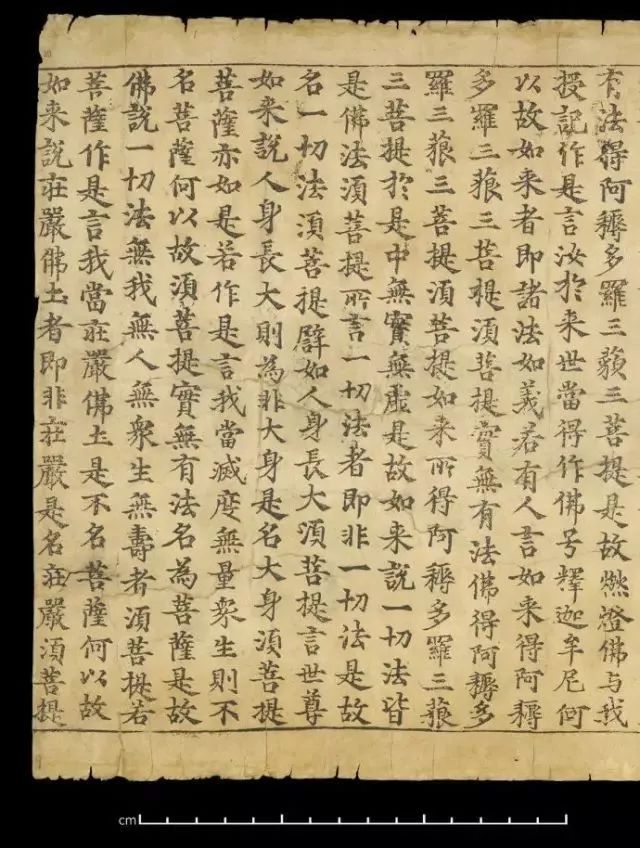 有法得阿耨多羅三藐三菩提是故燃燈佛与我
授記作是言汝於来世當得作佛号釋迦牟尼何
以故如来者即諸法如義若有人言如来得阿耨
多羅三藐三菩提湏菩提實無有法佛得阿耨多
羅三藐三菩提湏菩提如来所得阿耨多羅三藐
三菩提於是中無實無虛是故如来說一切法皆
是佛法湏菩提所言一切法者即非一切法是故
名一切法湏菩提譬如人身長大湏菩提言世尊
如来說人身長大則為非大身是名大身湏菩提
菩薩亦如是若作是言我當滅度無量衆生則不
名菩薩何以故湏菩提實無有法名為菩薩是故
佛說一切法無我無人無衆生無壽者湏菩提若
菩薩作是言我當荘嚴佛土是不名菩薩何以故
如来說荘嚴佛土者即非荘嚴是名荘嚴湏菩提
cm